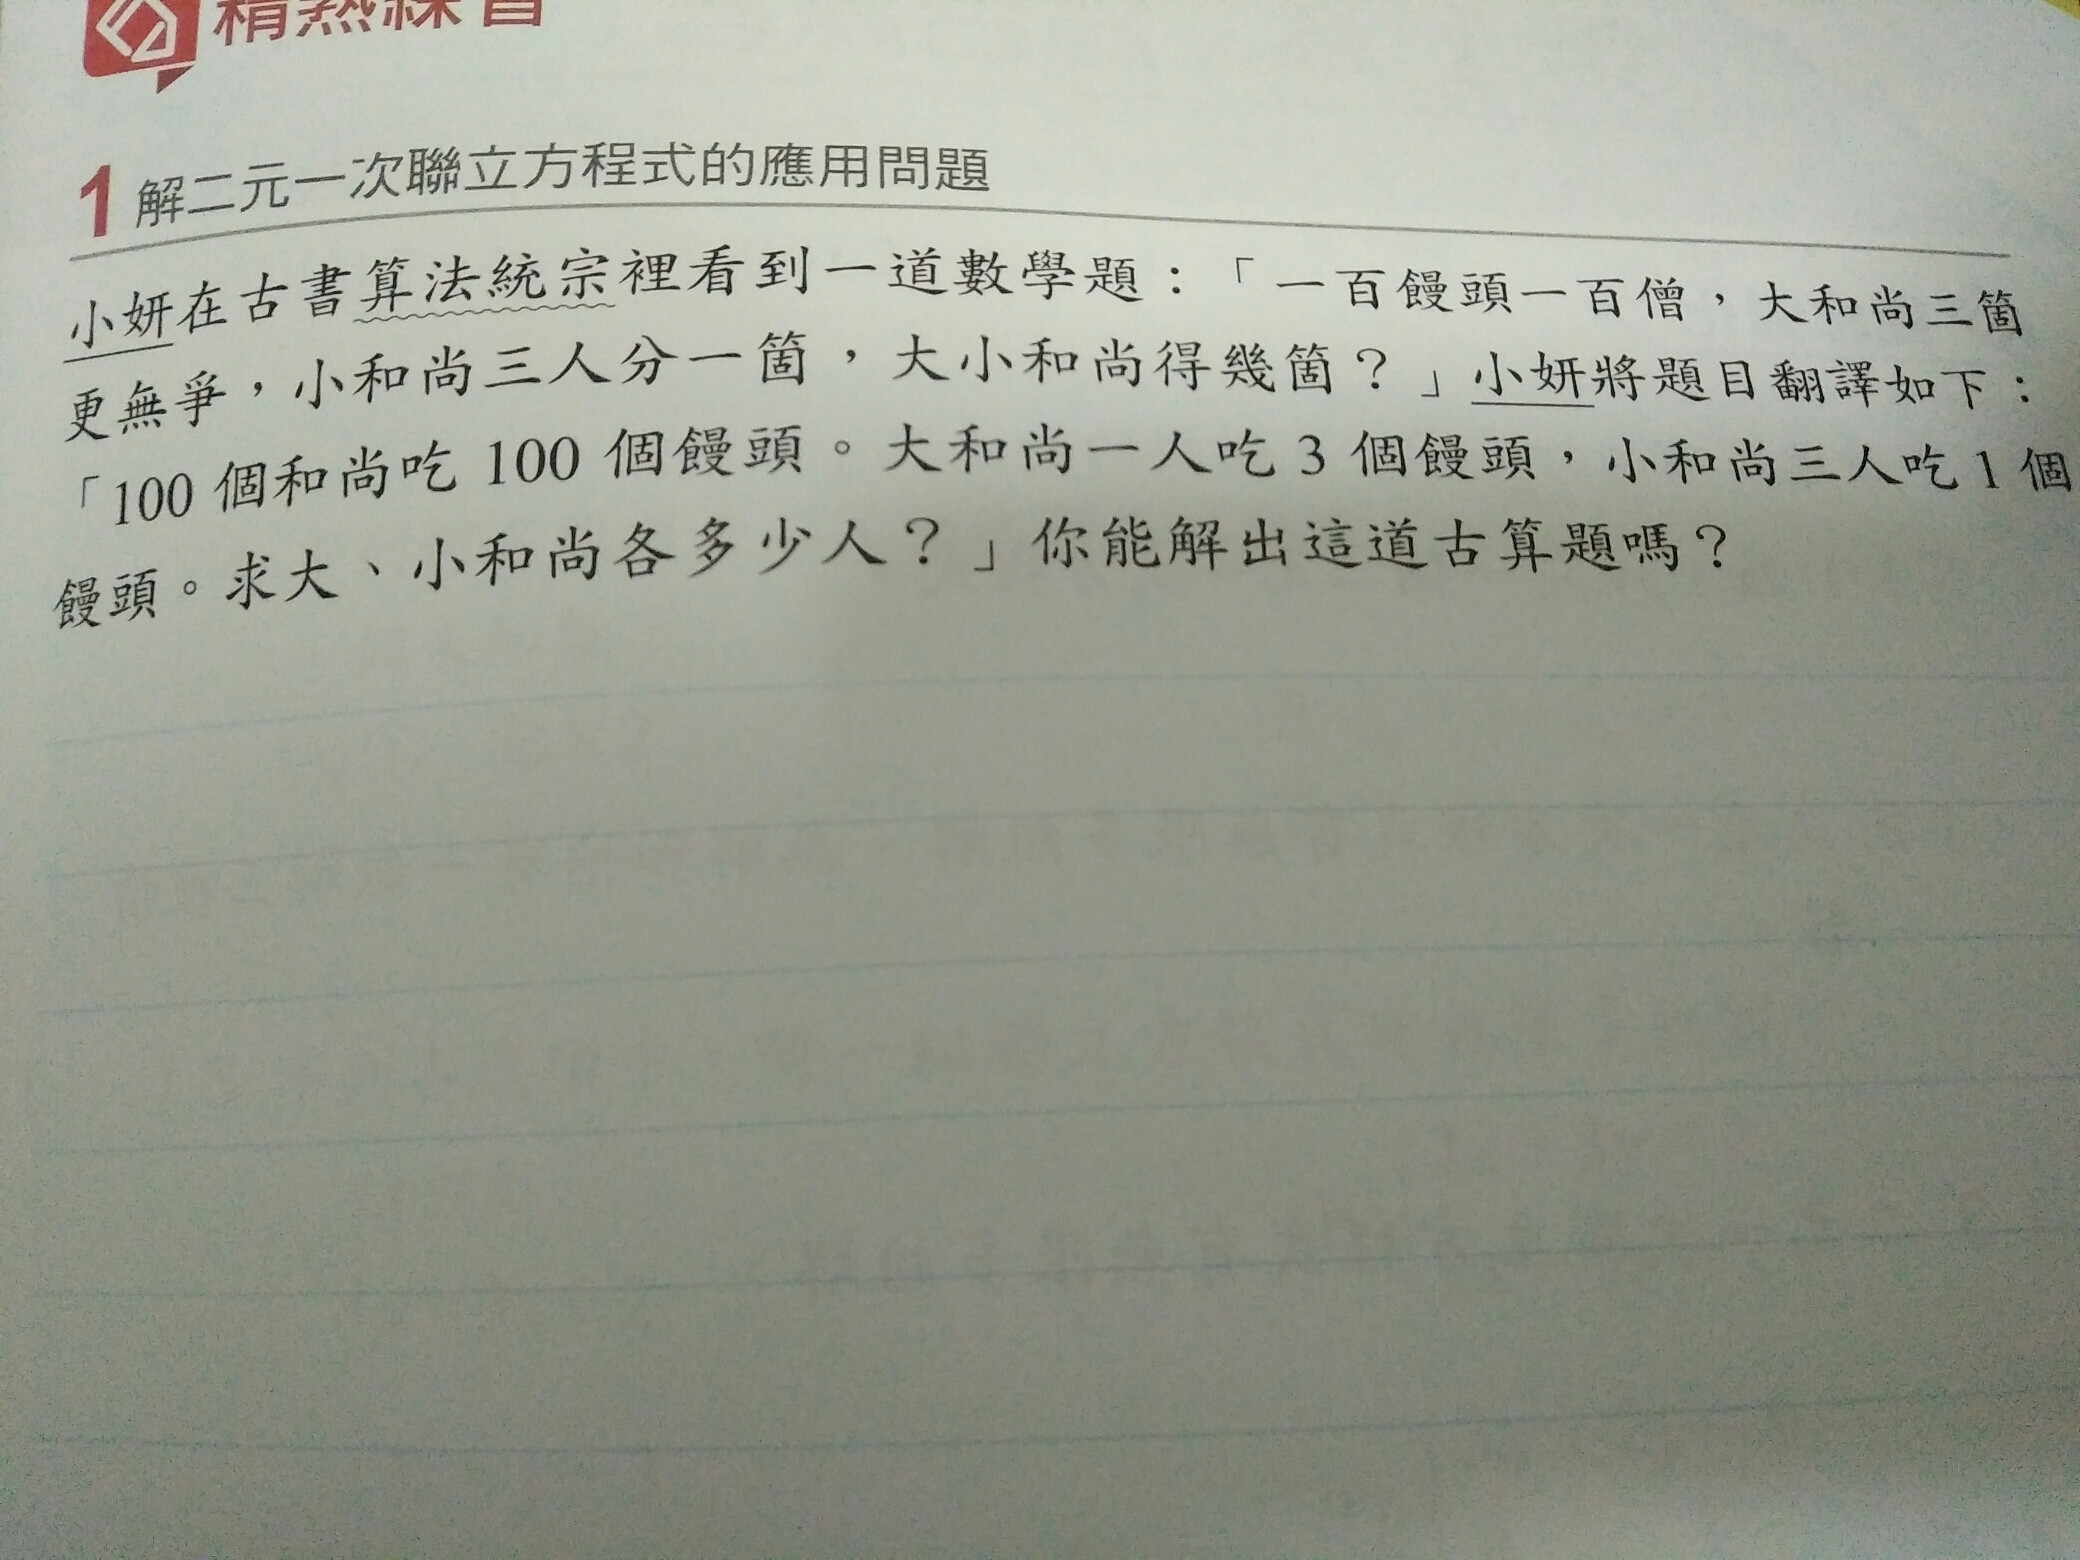 精熟練習
1 解二元一次聯立方程式的應用問題
小妍在古書算法統宗裡看到一道數學題：「一百饅頭一百僧，大和尚三箇
更無爭，小和尚三人分一箇，大小和尚得幾箇？」小妍將題目翻譯如下：
「100 個和尚吃 100 個饅頭。大和尚一人吃 3 個饅頭，小和尚三人吃 1 個
饅頭。求大、小和尚各多少人？」你能解出這道古算題嗎？